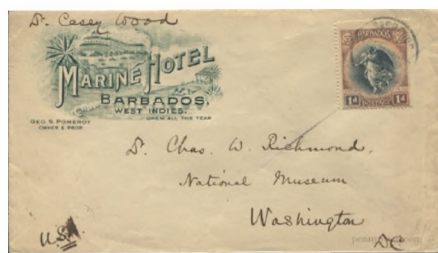 Dr. Casey Wood
MARINE HOTEL
BARBADOS,
WEST INDIES.
GEO. S. POMEROY
OWNER & PROP.
OPEN ALL THE YEAR
BARBADOS
1d POSTAGE 1d
Dr. Chas. W. Richmond,
National Museum
Washington
DC
U.S.A.